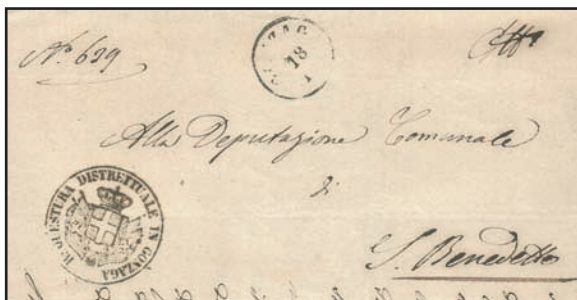 N.° 639
GONZAGA
18
1
Alla Deputazione Comunale
di
S. Benedetto
R. QUESTURA DISTRETTUALE IN GONZAGA